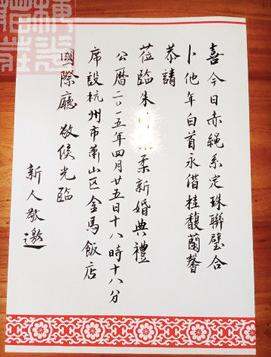 喜今日赤绳系定珠聯璧合
卜他年白首永偕桂馥蘭馨
恭請
莅臨朱 柔新婚典禮
公曆二〇二五年四月廿五日十八時十八分
席設杭州市萧山区金馬飯店
國際廳 敬候光臨
新人敬邀